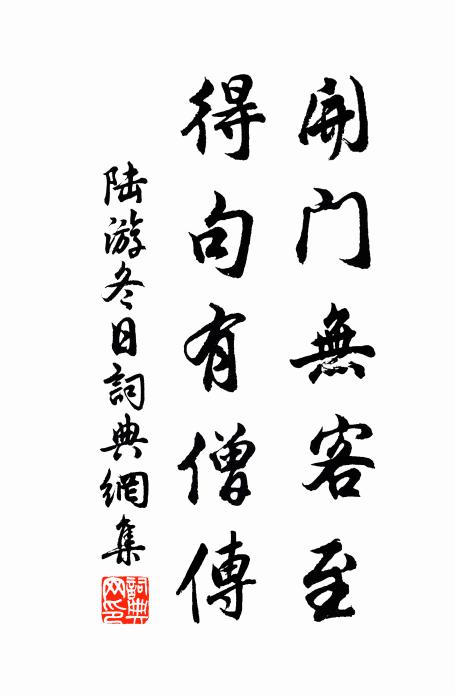 開門無客至
得句有僧傳
陸游冬日詞典網集
詞典
网印